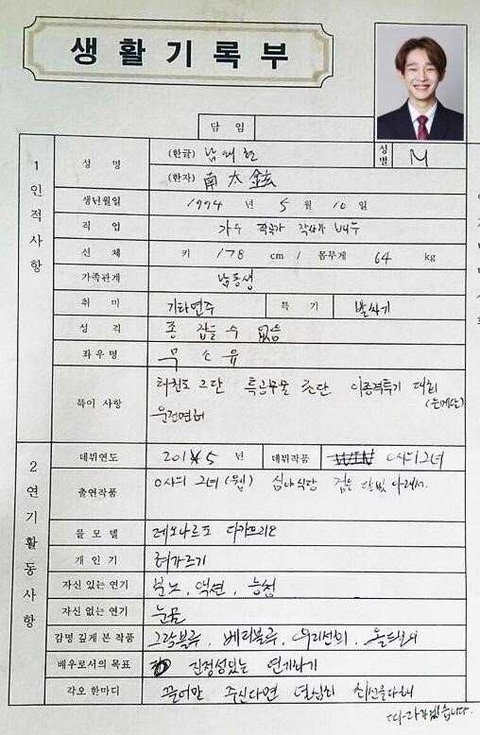 생활기록부
담 임
1 인적사항
성 명 (한글) 남태현 성별 M
(한자) 南太鉉
생년월일 1994 년 5 월 10 일
직 업 가수 작곡가 작사가 배우
신 체 키 178 cm / 몸무게 64 kg
가족관계 남동생
취 미 기타연주 특 기 발차기
성 격 종 잡을 수 없음
좌우명 무소유
특이 사항 태권도 2단 특공무술 초단 이종격투기 대회 (은메달)
운전면허
2 연기활동사항
데뷔연도 2015 년 데뷔작품 0시의 그녀
출연작품 0시의 그녀 (웹) 심야식당 검은 달빛 아래서
롤 모델 레오나르도 디카프리오
개 인 기 혀가르기
자신 있는 연기 분노, 액션, 능청
자신 없는 연기 눈물
감명 깊게 본 작품 그랑블루, 베티블루, 우리선희, 올드보이
배우로서의 목표 진정성있는 연기하기
각오 한마디 끌어만 주신다면 열심히 최선을다해
따라가겠습니다.